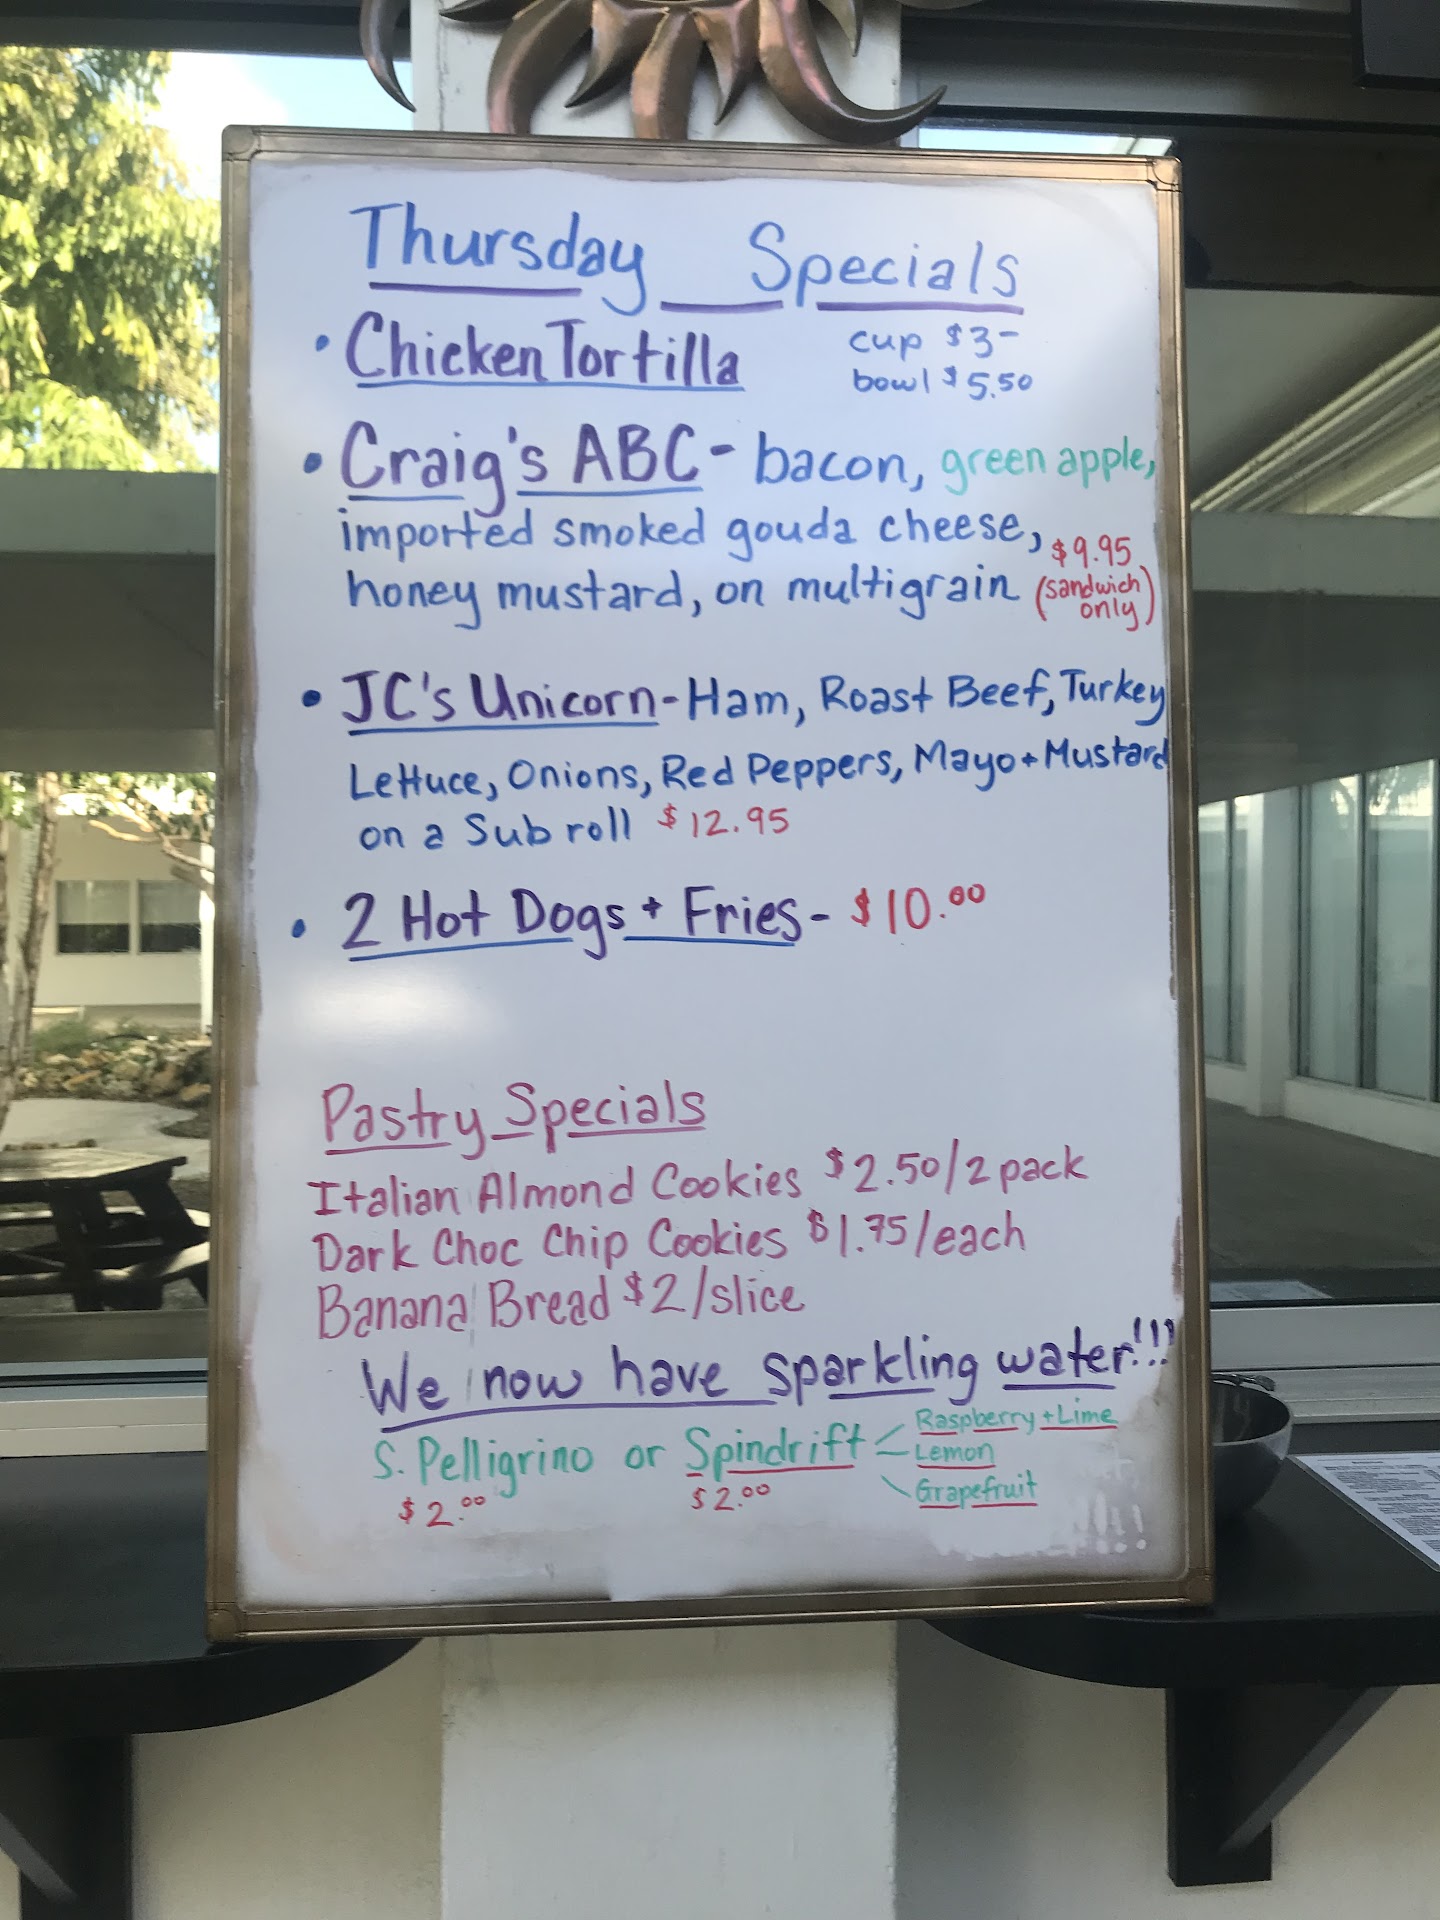 Thursday Specials
• Chicken Tortilla cup $3-
bowl $5.50
• Craig's ABC - bacon, green apple,
imported smoked gouda cheese, $9.95
honey mustard, on multigrain (sandwich
only)
• JC's Unicorn - Ham, Roast Beef, Turkey
Lettuce, Onions, Red Peppers, Mayo + Mustard
on a Sub roll $12.95
• 2 Hot Dogs + Fries - $10.00
Pastry Specials
Italian Almond Cookies $2.50/2 pack
Dark Choc Chip Cookies $1.75/each
Banana Bread $2/slice
We now have sparkling water!!!
S. Pelligrino or Spindrift Raspberry + Lime
Lemon
Grapefruit
$2.00 $2.00